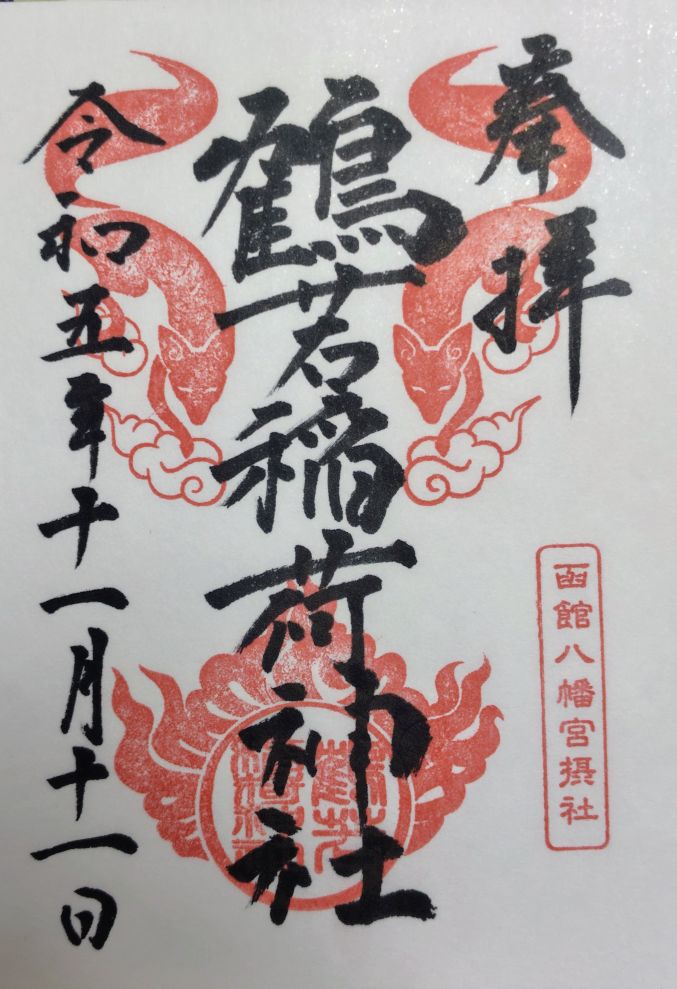 奉拝
函館八幡宮摂社
鶴若稲荷神社
令和五年十一月十一日